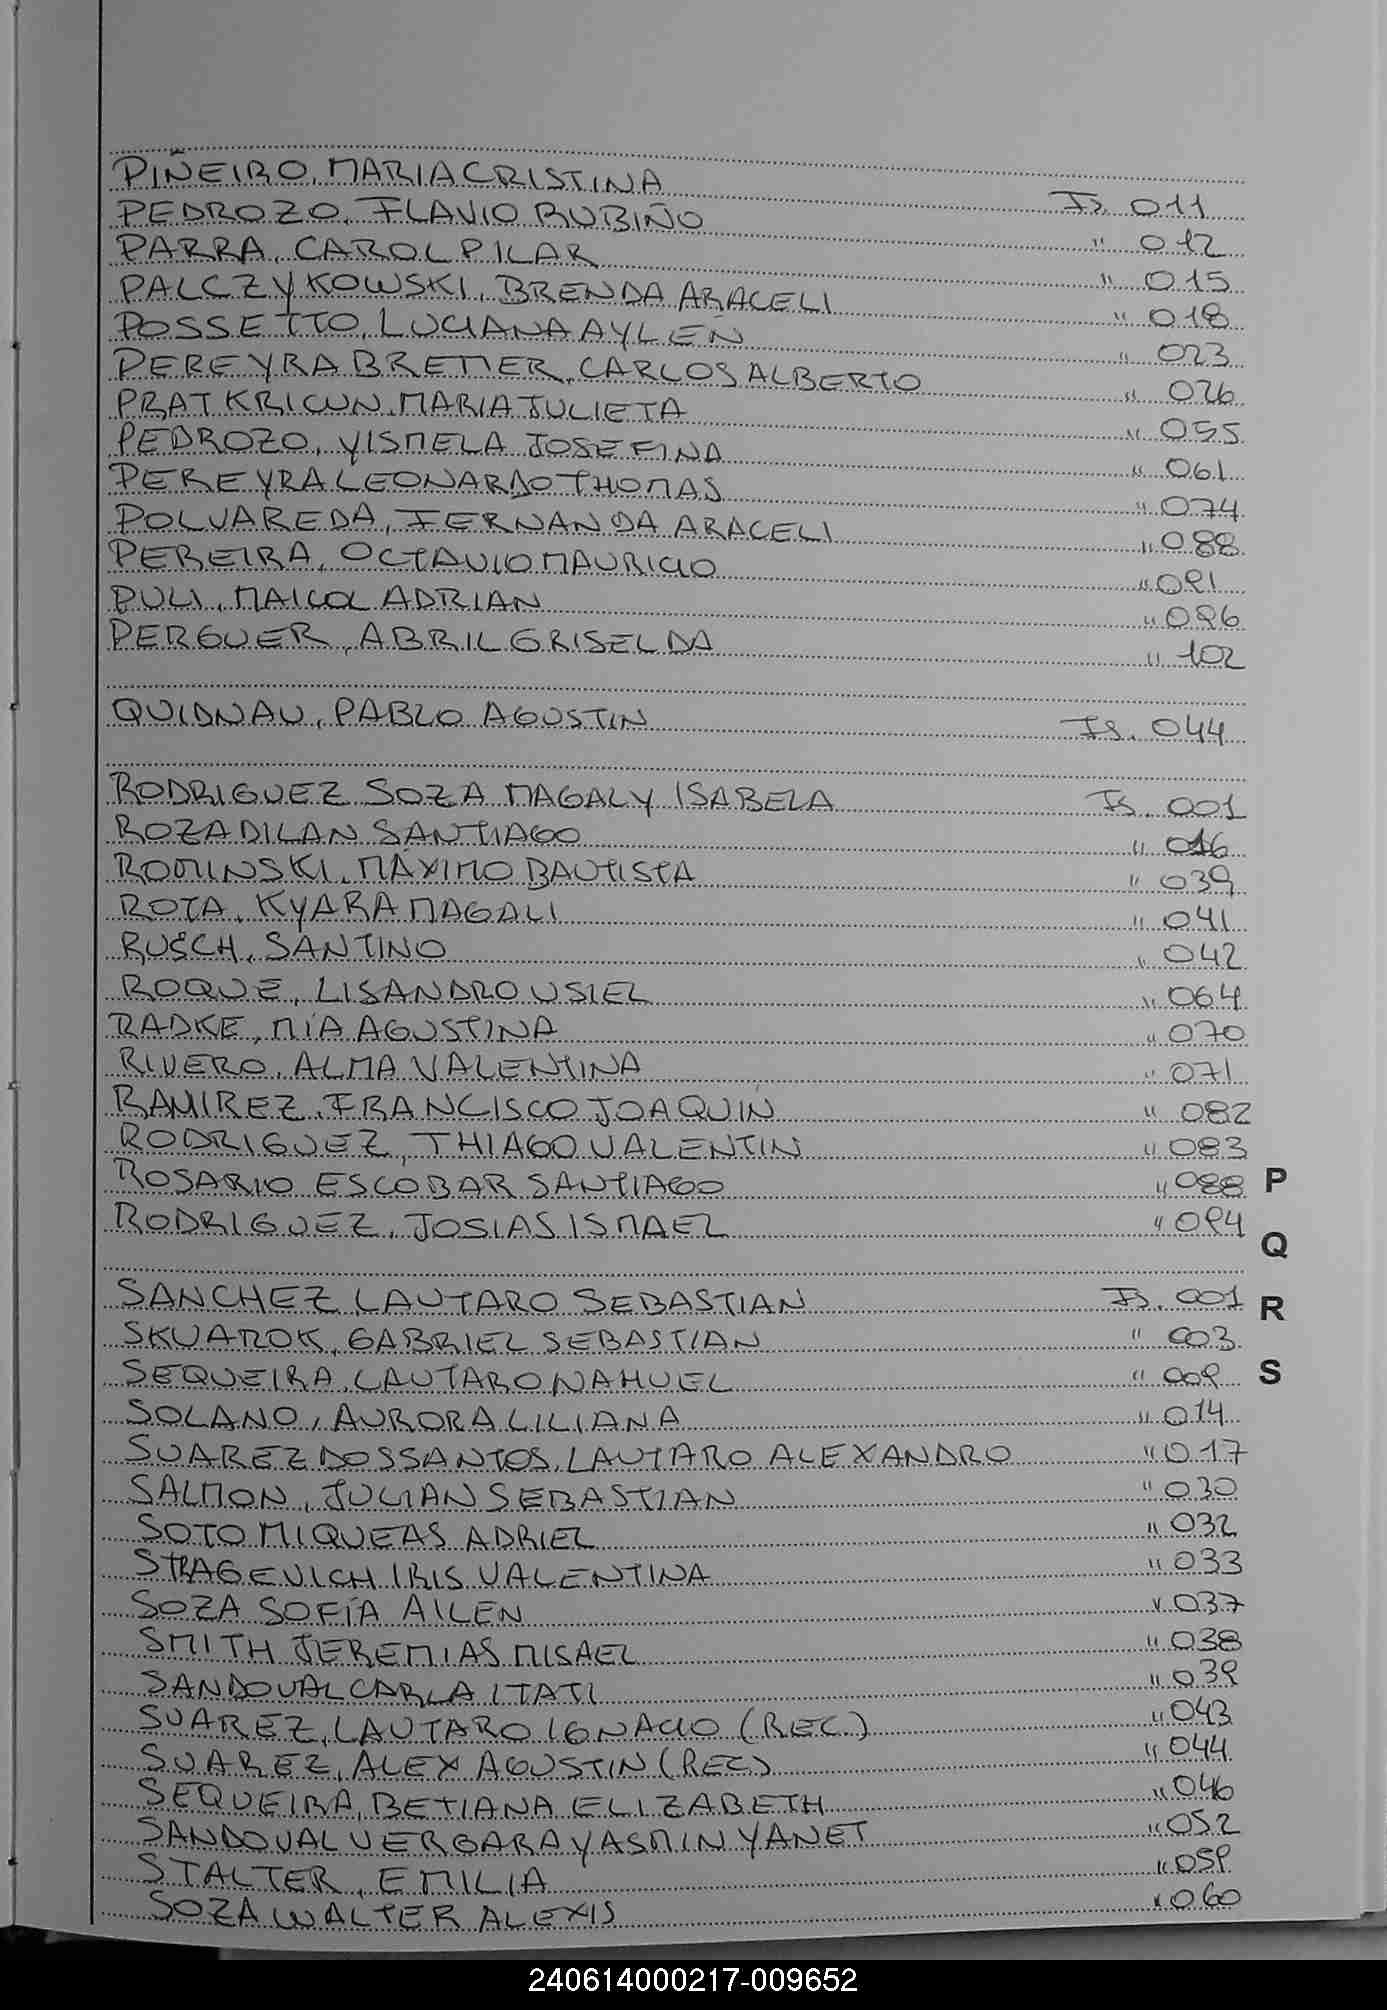 PIÑEIRO, MARIA CRISTINA Fs. 011
PEDROZO, FLAVIO RUBIÑO " 012
PARRA, CAROL PILAR " 015
PALCZYKOWSKI, BRENDA ARACELI " 018
POSSETTO, LUCIANA AYLÉN " 023
PEREYRA BRETTER, CARLOS ALBERTO " 026
PRAT KRICUN, MARIA JULIETA " 055
PEDROZO, YISMELA JOSEFINA " 061
PEREYRA LEONARDO THOMAS " 074
POLVAREDA, FERNANDA ARACELI " 088
PEREIRA, OCTAVIO MAURICIO " 091
PULI, MAICOL ADRIAN " 096
PERGUER, ABRIL GRISELDA " 102
QUIDNAU, PABLO AGUSTIN Fs. 044
RODRIGUEZ SOZA MAGALY ISABELA Fs. 001
ROZA DILAN SANTIAGO " 016
ROMINSKI, MÁXIMO BAUTISTA " 039
ROTA, KYARA MAGALI " 041
RUSCH, SANTINO " 042
ROQUE, LISANDRO USIEL " 064
RADKE, MÍA AGUSTINA " 070
RIVERO, ALMA VALENTINA " 071
RAMIREZ, FRANCISCO JOAQUÍN " 082
RODRIGUEZ, THIAGO VALENTIN " 083
ROSARIO ESCOBAR SANTIAGO " 088
RODRIGUEZ, JOSIAS ISMAEL " 094
SANCHEZ LAUTARO SEBASTIAN Fs. 001
SKUAROK, GABRIEL SEBASTIAN " 003
SEQUEIRA, LAUTARO NAHUEL " 009
SOLANO, AURORA LILIANA " 014
SUAREZ DOSSANTOS, LAUTARO ALEXANDRO " 017
SALMON, JULIAN SEBASTIAN " 030
SOTO MIQUEAS ADRIEL " 032
STRAGEVICH IRIS VALENTINA " 033
SOZA SOFÍA AILEN " 037
SMITH JEREMIAS MISAEL " 038
SANDOVAL CARLA ITATI " 039
SUAREZ, LAUTARO IGNACIO (REC.) " 043
SUAREZ, ALEX AGUSTIN (REC) " 044
SEQUEIRA, BETIANA ELIZABETH " 046
SANDOVAL VERGARA YASMIN YANET " 052
STALTER, EMILIA " 059
SOZA WALTER ALEXIS " 060
P
Q
R
S
240614000217-009652